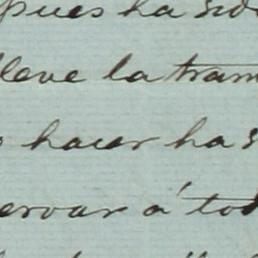 pues ha sid
lleve la tram
hacer ha s
ervar á tod